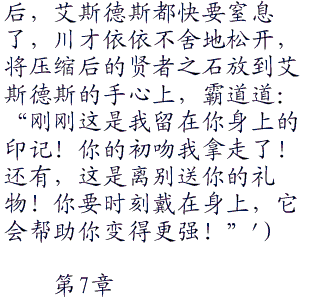 后，艾斯德斯都快要窒息
了，川才依依不舍地松开，
将压缩后的贤者之石放到艾
斯德斯的手心上，霸道道：
“刚刚这是我留在你身上的
印记！你的初吻我拿走了！
还有，这是离别送你的礼
物！你要时刻戴在身上，它
会帮助你变得更强！”')
第7章